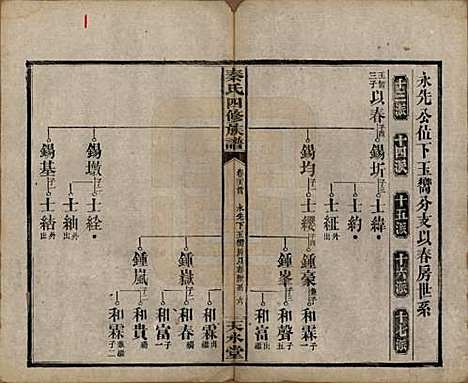 永先公位下玉嚮分支以春房世系
十三派
十四派
十五派
十六派
十七派
玉嚮三子
以春
錫圻
士緯
士約
錫均
士纓
士紝
出
鍾豪
和霖
鍾峯
和聲
和富
出
秦氏四修族譜
永先下玉嚮房以春世系
六
天水堂
錫墩
士絟
錫基
士紬
外出
士結
出外
鍾嶽
和霖
和春
和富
鍾嵐
和貴
和霖